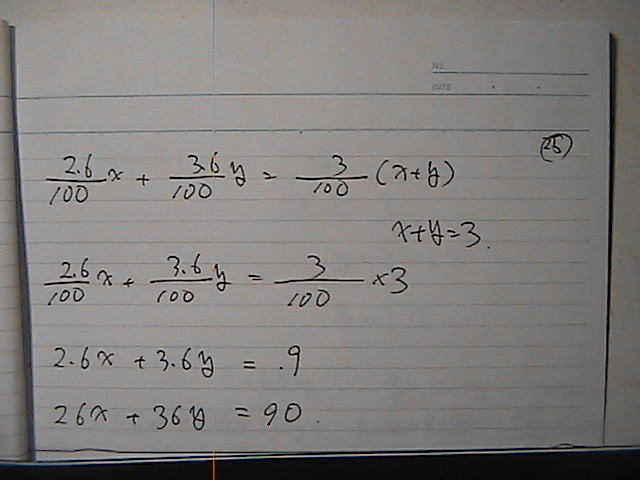 NO.
DATE
(25)
2.6/100 x + 3.6/100 y = 3/100 (x+y)
x+y=3.
2.6/100 x + 3.6/100 y = 3/100 ×3
2.6x + 3.6y = .9
26x + 36y = 90.